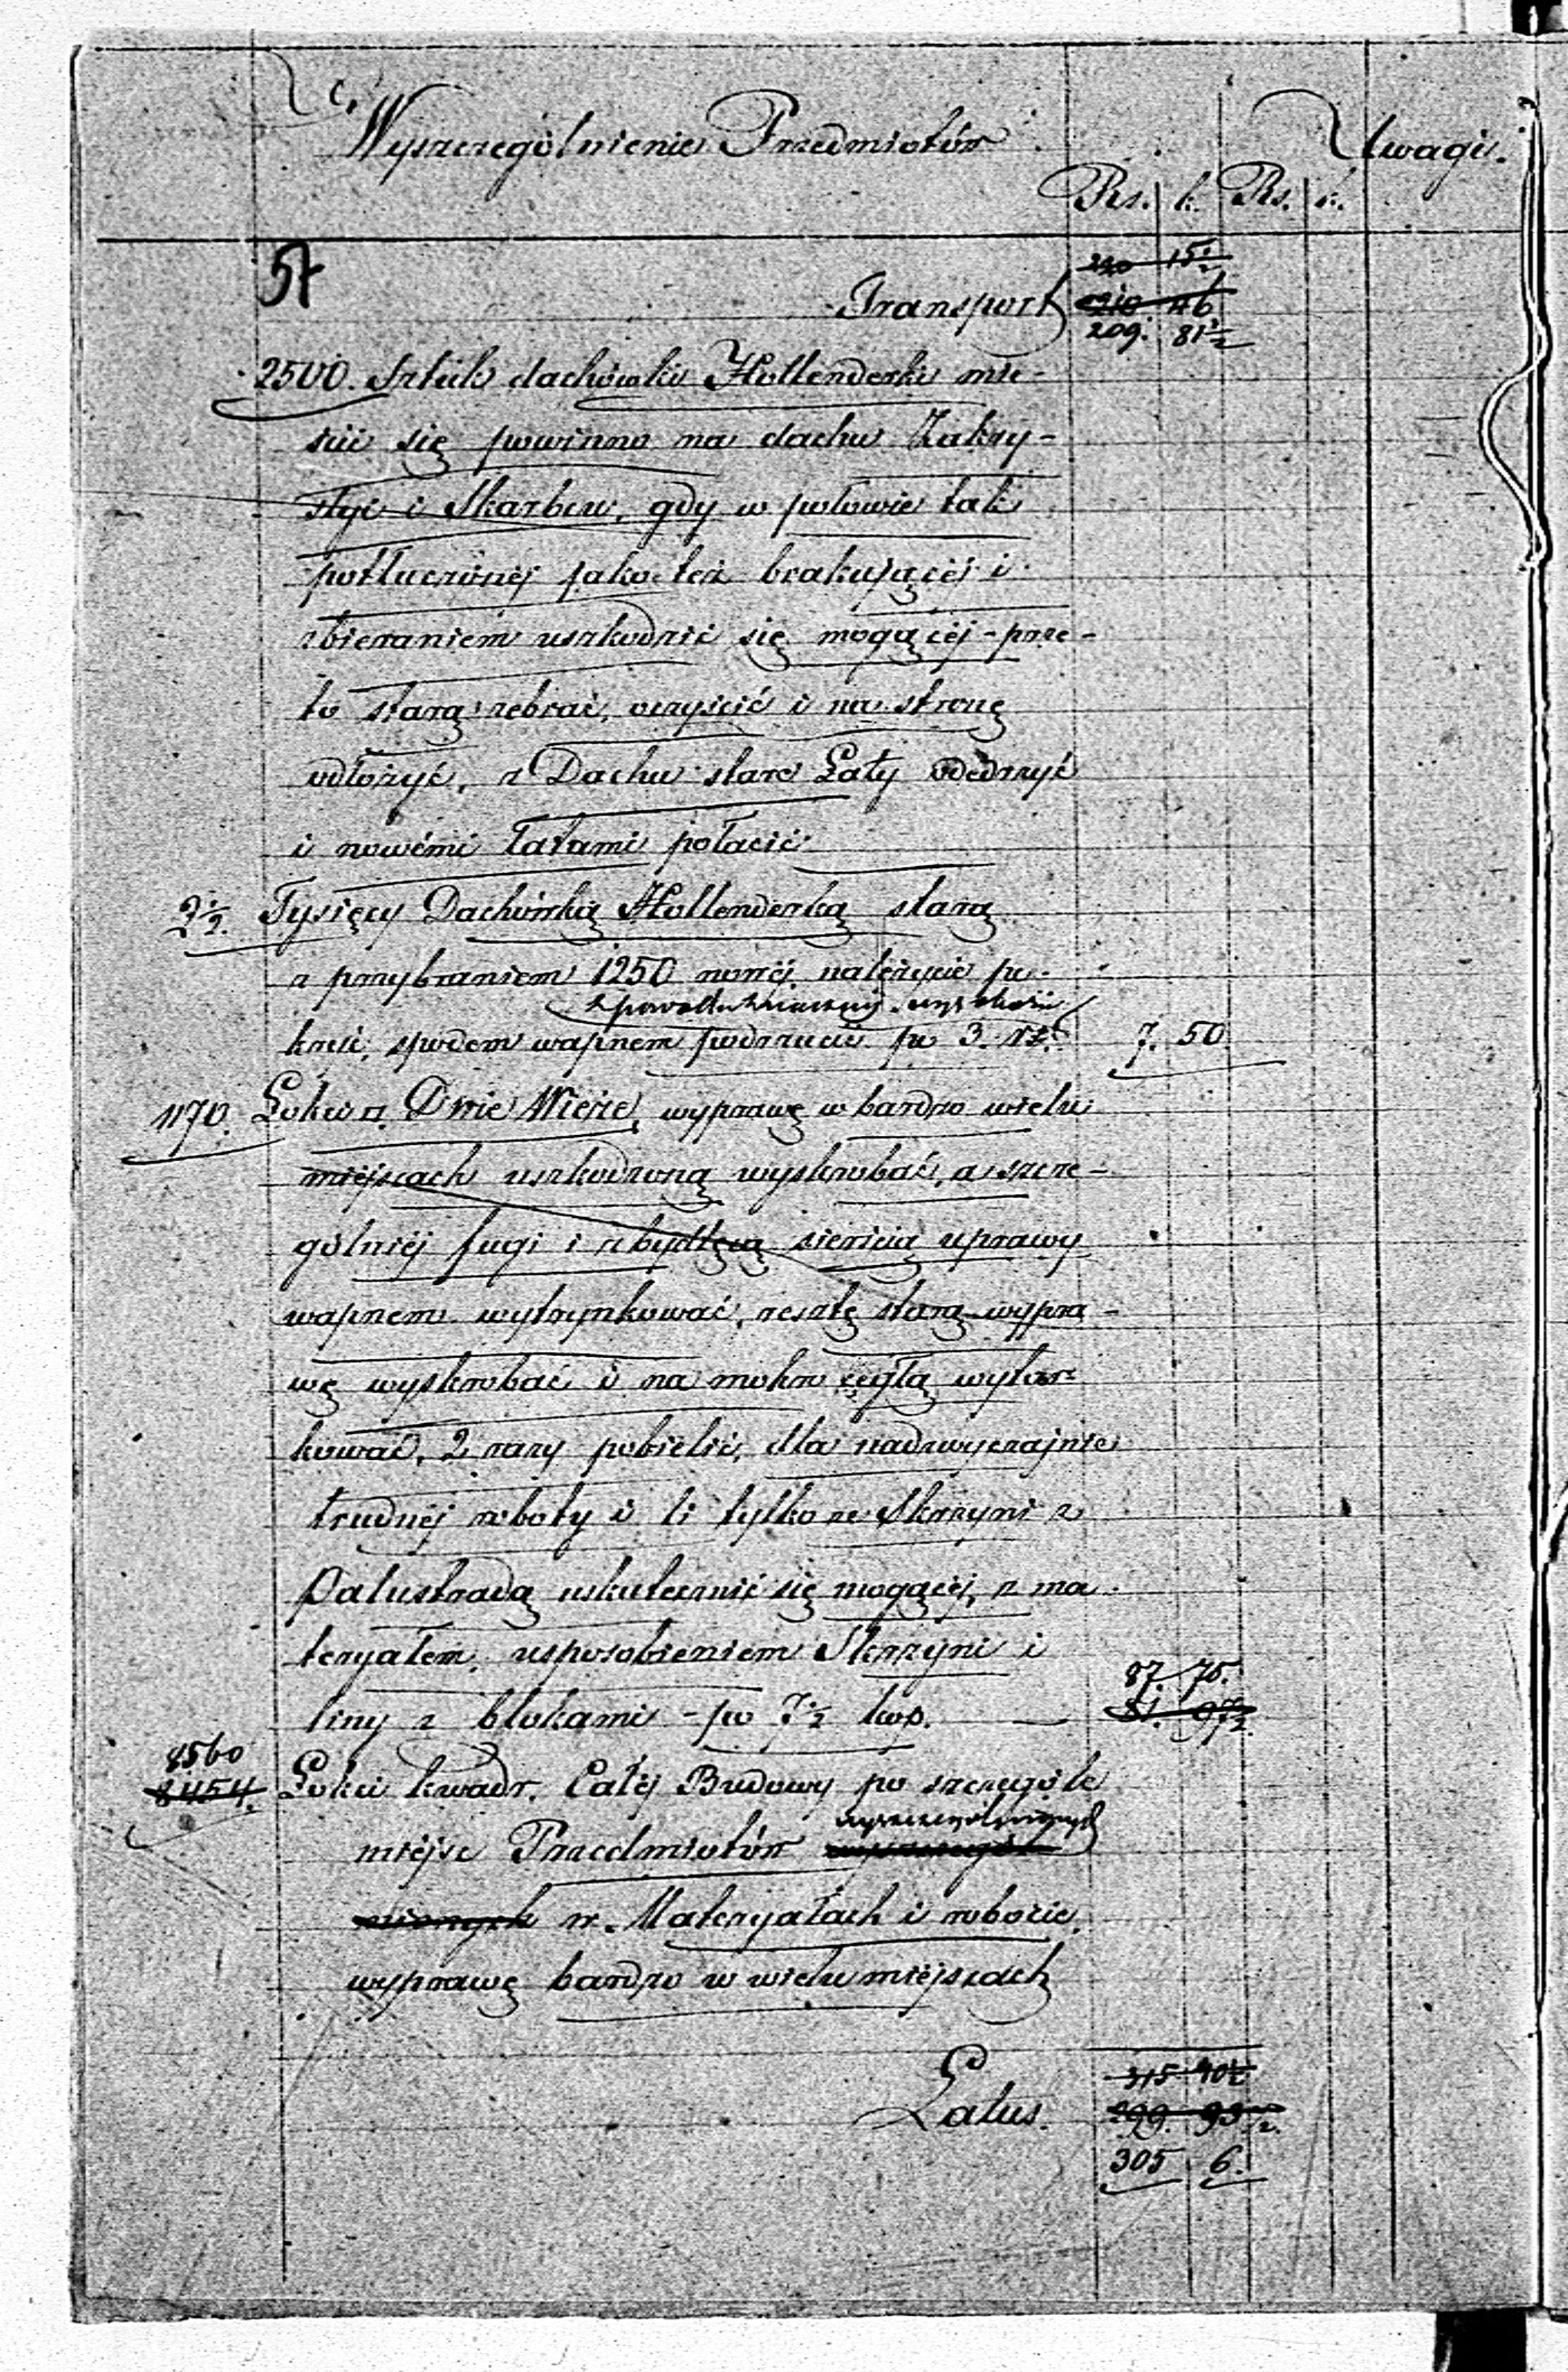 C.
Wyszczególnienie Przedmiotów Uwagi.
Rs. k. Rs. k.
57
220 15½
Transport 210. 46
209. 81½
2500. Sztuk dachówki Hollenderki mie-
ścić się powinno na dachu Zakry-
styi i Skarbcu, gdy w połowie tak
potłuczonéj jako też brakującéj i
zbieraniem uszkodzić się mogącéj - prze-
to starą zebrać, oczyścić i na stronę
odłożyć, z Dachu stare Łaty odedrzyć
i nowémi łatami połacić
2½. Tysięcy Dachówką Hollenderką starą
z przybraniem 1250 nowéj należycie po-
z powodu znacznéj wysokości
kryć, spodem wapnem podrzucić po 3. rs. 7. 50
1170. Łokci □. Dwie Wieże, wyprawę w bardzo wielu
miejscach uszkodzoną wyskrobać, a szcze-
gólniéj fugi i z bydlęcą siercią uprawy
wapnem wytrynkować, resztę starą wypra-
wę wyskrobać i na mokro cegłą wytar-
kować, 2 razy pobielić, dla nadzwyczajnie
trudnéj roboty i li tylko ze Skrzyni z
Palustradą uskutecznić się mogącéj, z ma-
teryałem, usposobieniem Skrzyni i
87. 75.
liny z blokami - po 7½ kop. 81. 97½.
8560
8454. Łokci kwadr. Całéj Budowy po szczególe
wyszczególnionych
miejsc Przedmiotów
w Materyałach i robocie,
wyprawę bardzo w wielu miejscach
315 40½
Latus. 299. 93½.
305 6.